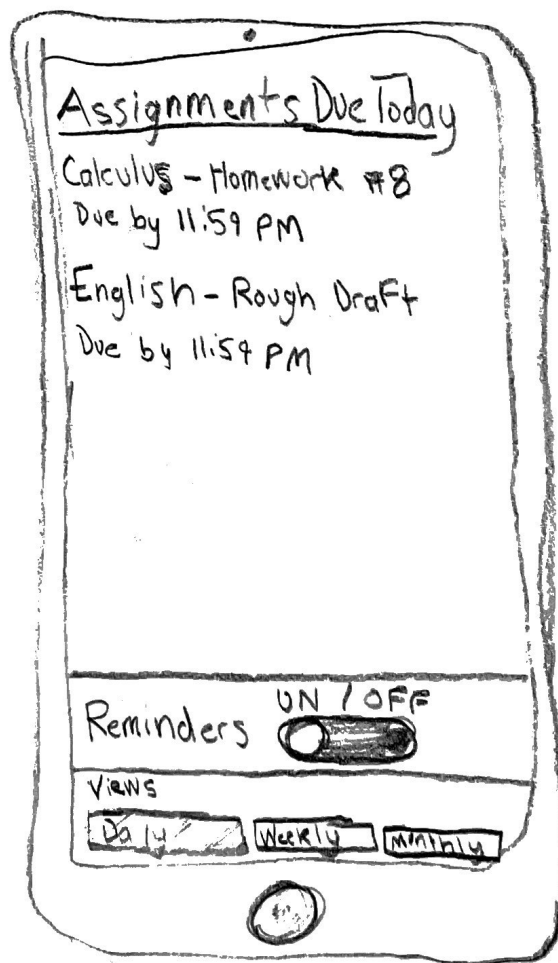 Assignments Due Today
Calculus - Homework #8
Due by 11:59 PM
English - Rough Draft
Due by 11:59 PM
Reminders ON / OFF
Views
Daily Weekly Monthly